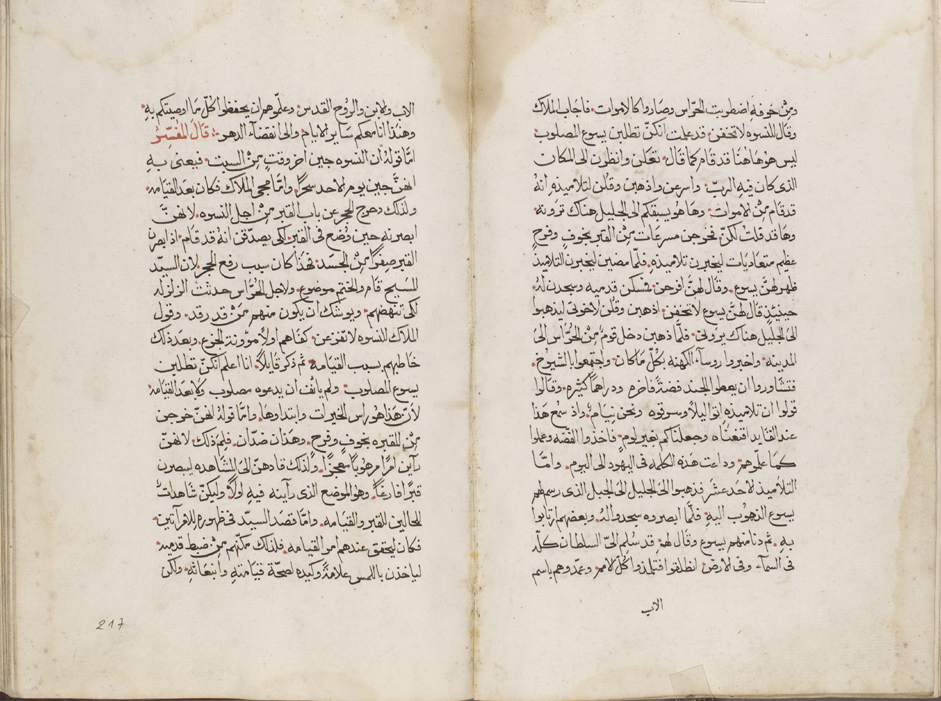 ومن خوفه اضطربت الحراس وصاروا كالاموات. فاجاب الملاك
وقال للنسوه لا تخفن. قد علمت انكن تطلبن يسوع المصلوب
ليس هو هاهنا قد قام كما قال. تعالن وانظرن الى المكان
الذى كان فيه الرب. واسرعن واذهبن وقلن لتلاميذه انه
قد قام من الاموات. وها هو يسبقكم الى الجليل هناك ترونه.
وها قد قلت لكن. فخرجن مسرعات من القبر بخوف وفرح
عظيم متعاديات ليخبرن تلاميذه. فلما مضين ليخبرن التلاميذ
ظهر لهن يسوع. وقال لهن افرحن. فمسكن قدميه وسجدن له.
حينيذ قال لهن يسوع لا تخفن. اذهبن وقلن لاخوتى ليذهبوا
الى الجليل هناك يرونى. فلما ذهبن دخل قوم من الحراس الى
المدينه. واخبروا روسآء الكهنه بكل ما كان. واجتمعوا بالشيوخ.
فتشاوروا ان يعطوا الجند فضة فاخرم ودراهما كثيره. وقالوا
قولوا ان تلاميذه اتوا ليلا وسرقوه ونحن نيام. واذ سمع هذا
عند القايد اقنعناه وجعلناكم بغير لوم. فاخذوا الفضه وعملوا
كما علموهم. وذاعت هذه الكلمه فى اليهود الى اليوم. واما
التلاميذ الاحد عشر فذهبوا الى الجليل الى الجبل الذى رسم لهم
يسوع الذهوب اليه. فلما ابصروه سجدوا له. وبعضهم ارتابوا
به. ثم دنا منهم يسوع وقال لهم. قد سُلم الىّ السلطان كله
فى السمآء وفى الارض. انطلقوا فتلمذوا كل الامم. وعمدوهم باسم
الاب
الاب والابن والروح القدس. وعلموهم ان يحفظوا كل ما اوصيتكم به.
وهنذا انا معكم ساير الايام والى انقضآء الدهر. قال المفسر
اما قوله ان النسوه جين اخر وقت من السبت. فيعنى به
انهن جين يوم الاحد سحرا. واما مجى الملاك فكان بعد القيامه.
ولذلك دحرج الحجر عن باب القبر من اجل النسوه. لانهن
ابصرنه حين وُضع فى القبر. لكى يصدقن انه قد قام. اذ ابصرن
القبر صفرا من الجسد. فهذا كان سبب رفع الحجر. لان السيد
المسيح قام والختم موضوع. ولاجل الحراس حدثت الزلزله
لكى تنهضهم. ويوشك ان يكون منهم من قد رقد. وقول
الملاك للنسوه لا تفزعن. كفاهم اولا موونة الجزع. وبعد ذلك
خاطبهم بسبب القيامه. ثم ذكر قايلا. انا اعلم انكن تطلبن
يسوع المصلوب. ولم يانف ان يدعوه مصلوب ولا بعد القيامه.
لان هذا هو راس الخيرات وابتداوها. واما قوله انهن خرجن
من المقبره بخوف وفرح. وهذان ضدان. فلم ذلك. لانهن
راين امرا مرهوبا معجزا. ولذلك قادهن الى المشاهده ليبصرن
قبرا فارغا. وهو الموضع الذى راينه فيه اولا. وليكن شاهدات
للحالين القبر والقيامه. واما قصد السيد فى ظهوره للامراتين.
فكان ليحقق عندهم امر القيامه. فلذلك مكنهم من ضبط قدميه.
لياخذن باللمس علامة وكيده لصحة قيامته وانبعاثه. ولكن
217